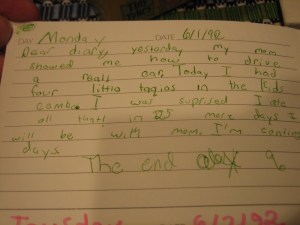 DAY Monday DATE 6/1/92
Dear diary, yesterday my mom
showed me how to drive
a real car. Today I had
four little taqios in the Kids
combo. I was suprised I ate
all that! in 25 more days I
will be with mom. I'm
days
The end
Tuesday 6/2/92